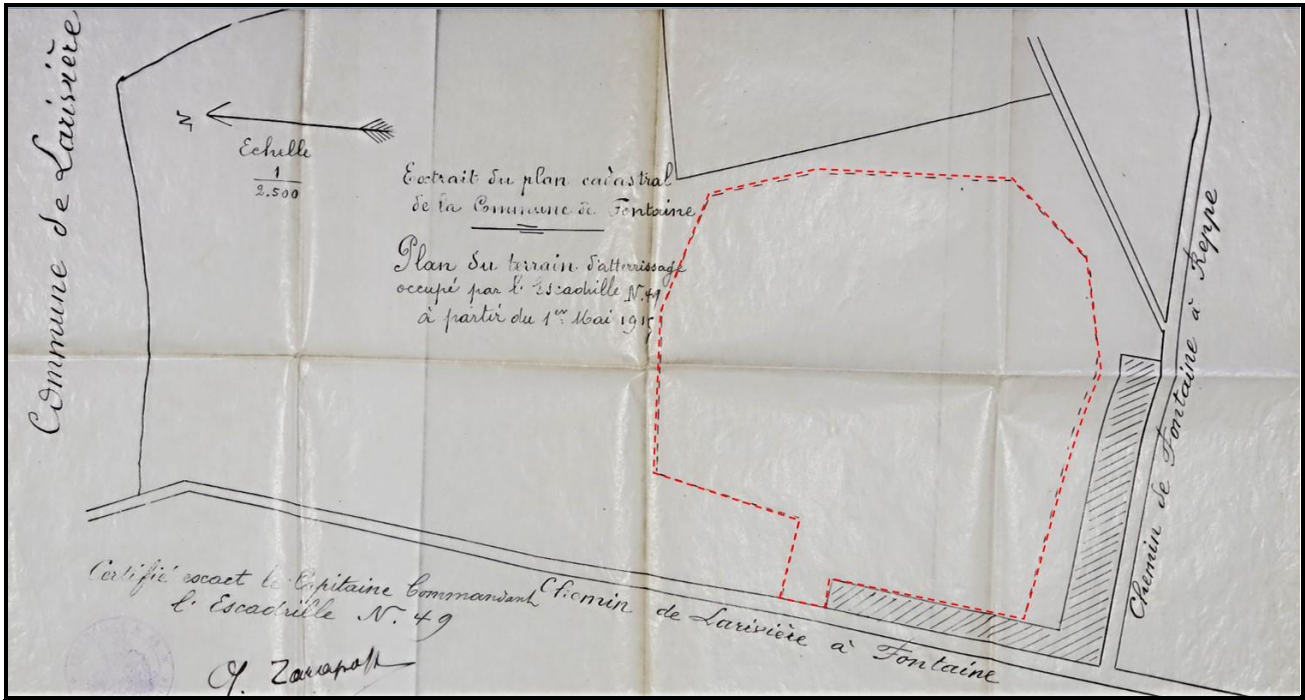 Commune de Larivière
N
Echelle
1
2.500
Extrait du plan cadastral
de la Commune de Fontaine
Plan du terrain d'atterrissage
occupé par l'Escadrille N. 49
à partir du 1er Mai 1915
Chemin de Fontaine à Reppe
Chemin de Larivière à Fontaine
Certifié exact le Capitaine Commandant
l'Escadrille N. 49